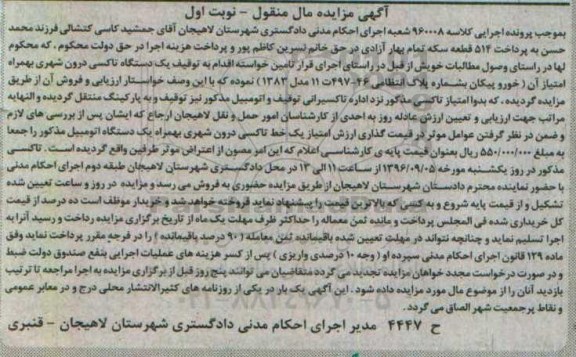 آگهی مزایده مال منقول - نوبت اول
بموجب پرونده اجرایی کلاسه ۹۶۰۰۰۸ شعبه اجرای احکام مدنی دادگستری شهرستان لاهیجان آقای جمشید کاسی کتشالی فرزند محمد
حسن به پرداخت ۵۱۴ قطعه سکه تمام بهار آزادی در حق خانم نسرین کاظم پور و پرداخت هزینه اجرا در حق دولت محکوم ، که محکوم
لها در راستای وصول مطالبات خویش از قبل در راستای اجرای قرار تامین خواسته اقدام به توقیف یک دستگاه تاکسی درون شهری بهمراه
امتیاز آن ( خورو پیکان بشماره پلاک انتظامی ۴۶-۴۹۷ت ۱۱ مدل ۱۳۸۳) نموده که با این وصف خواستار ارزیابی و فروش آن از طریق
مزایده گردیده ، که بدوا امتیاز تاکسی مذکور نزد اداره تاکسیرانی توقیف و اتومبیل مذکور نیز توقیف و به پارکینگ منتقل گردیده و النهایه
مراتب جهت ارزیابی و تعیین ارزش عادله روز به احدی از کارشناسان امور حمل و نقل لاهیجان ارجاع که ایشان پس از بررسی های لازم
و ضمن در نظر گرفتن عوامل موثر در قیمت گذاری ارزش امتیاز یک خط تاکسی درون شهری بهمراه یک دستگاه اتومبیل مذکور را جمعا
به مبلغ ۵۵۰/۰۰۰/۰۰۰ ریال بعنوان قیمت پایه ی کارشناسی اعلام که این امر مصون از اعتراض موثر طرفین واقع گردیده است . تاکسی
مذکور در روز یکشنبه مورخه ۱۳۹۶/۰۹/۰۵ از ساعت ۱۱ الی ۱۳ در محل دادگستری شهرستان لاهیجان طبقه دوم اجرای احکام مدنی
با حضور نماینده محترم دادستان شهرستان لاهیجان از طریق مزایده حضوری به فروش می رسد و مزایده در روز و ساعت تعیین شده
تشکیل و از قیمت پایه شروع و به کسی که بالاترین قیمت را پیشنهاد نماید فروخته خواهد شد و خریدار موظف است ده درصد از قیمت
کل خریداری شده فی المجلس پرداخت و مانده ثمن معامله را حداکثر ظرف مهلت یک ماه از تاریخ برگزاری مزایده پرداخت و رسید آنرا به
اجرا تسلیم نماید و چنانچه نتواند در مهلت تعیین شده باقیمانده ثمن معامله ( ۹۰ درصد باقیمانده ) را در فرجه مقرر پرداخت نماید وفق
ماده ۱۲۹ قانون اجرای احکام مدنی سپرده او ( وجه ۱۰ درصدی واریزی ) پس از کسر هزینه های عملیات اجرایی بنفع صندوق دولت ضبط
و در صورت درخواست مجدد خواهان مزایده تجدید می گردد متقاضیان می توانند پنج روز قبل از برگزاری مزایده به اجرا مراجعه تا ترتیب
بازدید آنان را از موضوع مال مورد مزایده داده شود . این آگهی یک بار در یکی از روزنامه های کثیرالانتشار محلی درج و در معابر عمومی
و نقاط پرجمعیت شهر الصاق می گردد .
ح ۴۴۴۷ مدیر اجرای احکام مدنی دادگستری شهرستان لاهیجان - قنبری